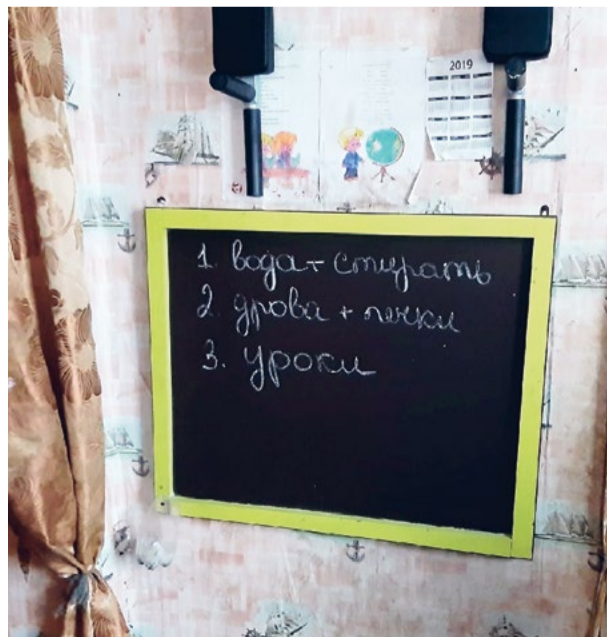 2019
1. вода + стирать
2. дрова + печки
3. уроки